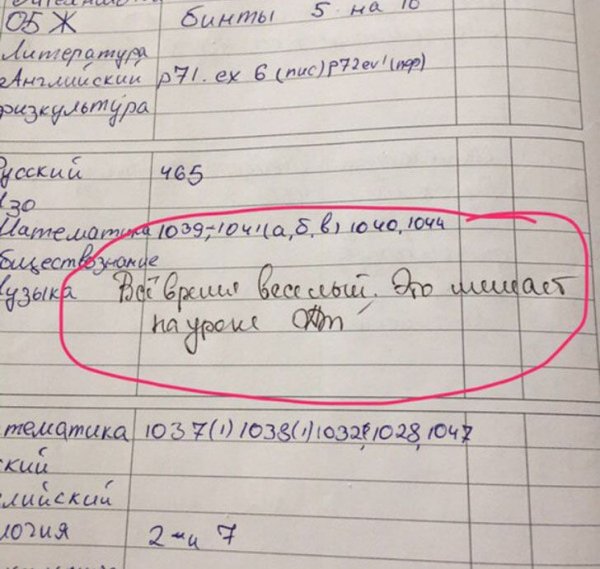 ОБЖ бинты 5 на 10
Литература
Английский p71. ex 6 (пис) p72 ex1 (пер)
физкультура
усский 465
изо
Математика 1039, 1041(а, б, в) 1040, 1044
бществознание
узыка Всё время веселый. Это мешает
на уроке
тематика 1037(1) 1038(1) 1032, 1028, 1047
ский
лийский
логия 2 и 7